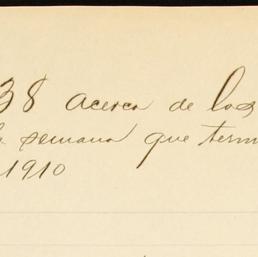 38 acerca de los
semana que term
1910